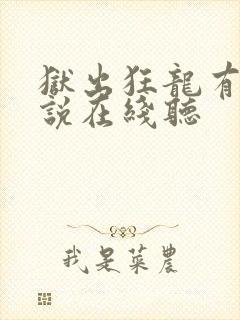 獄出狂龍有
說在綫聽
我是菜農